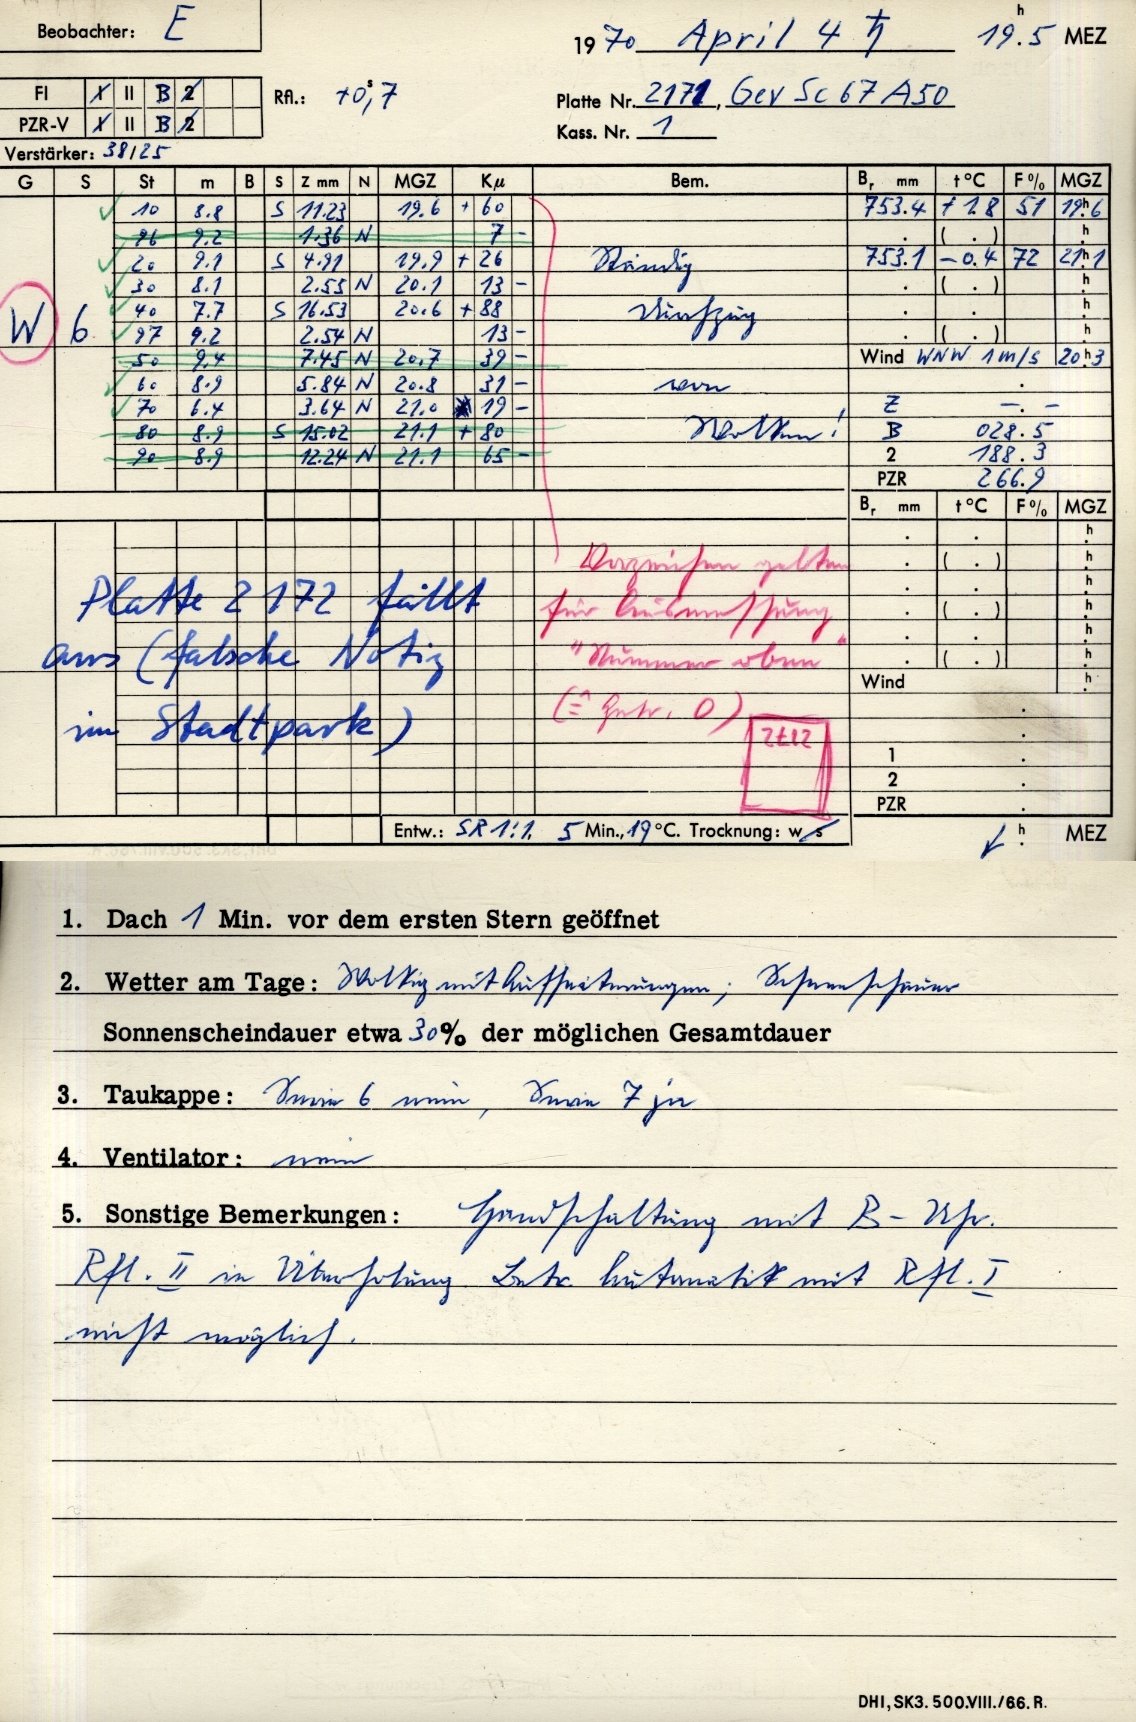 Beobachter: E
1970 April 4 ♄ 19.5 h MEZ
FI I II B 2
PZR-V I II B 2
Rfl.: +0,7 s
Platte Nr. 2171, Gev Sc 67 A50
Kass. Nr. 1
Verstärker: 38/25
G S St m B S Z mm N MGZ Kμ Bem. Br mm t°C F% MGZ
10 8.8 S 11.23 19.6 + 60 753.4 +1.8 51 19.6 h
96 9.2 1.36 N 7 - . ( . ) h
20 9.1 S 4.91 19.9 + 26 Ständig 753.1 -0.4 72 21.1 h
30 8.1 2.55 N 20.1 13 - . ( . ) h
40 7.7 S 16.53 20.6 + 88 Durchzug
W 6 97 9.2 2.54 N 13 - . ( . ) h
50 9.4 7.45 N 20.7 39 - Wind WNW 1 m/s 20.3 h
60 8.9 5.84 N 20.8 31 - von
70 6.4 3.64 N 21.0 19 - Z -.-
80 8.9 S 15.02 21.1 + 80 Wolken! B 028.5
90 8.9 12.24 N 21.1 65 - 2 188.3
PZR 266.9
Br mm t°C F% MGZ
Vorzeichen gelten
Platte 2172 fällt
für Ausmessung
aus (falsche Notiz
"Nummer oben"
Wind
im Stadtpark)
(≙ 0)
2172
1
2
PZR
Entw.: SR 1:1. 5 Min., 19 °C. Trocknung: w s
h MEZ
1. Dach 1 Min. vor dem ersten Stern geöffnet
2. Wetter am Tage: Wolkig mit Aufheiterungen; Schneeschauer
Sonnenscheindauer etwa 30% der möglichen Gesamtdauer
3. Taukappe: Serie 6 nein, Serie 7 ja
4. Ventilator: nein
5. Sonstige Bemerkungen: Handschaltung mit B-Uhr.
Rfl. II in Überholung. Automatik mit Rfl. I
nicht möglich.
DHI, SK3. 500.VIII./66. R.